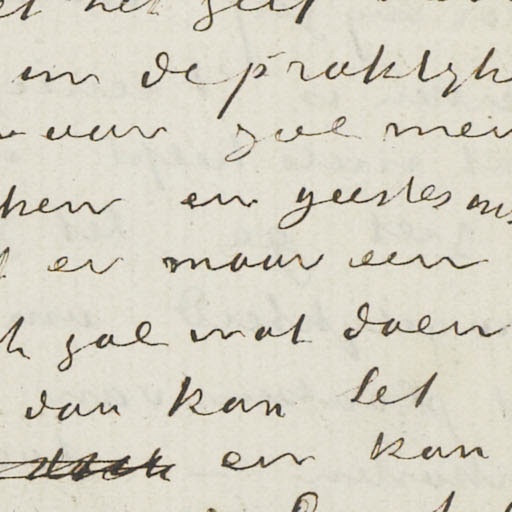 et het zelf
in de praktijk
waar zal men
ken en geestes
er maar een
ik zal wat doen
dan kan het
en kan